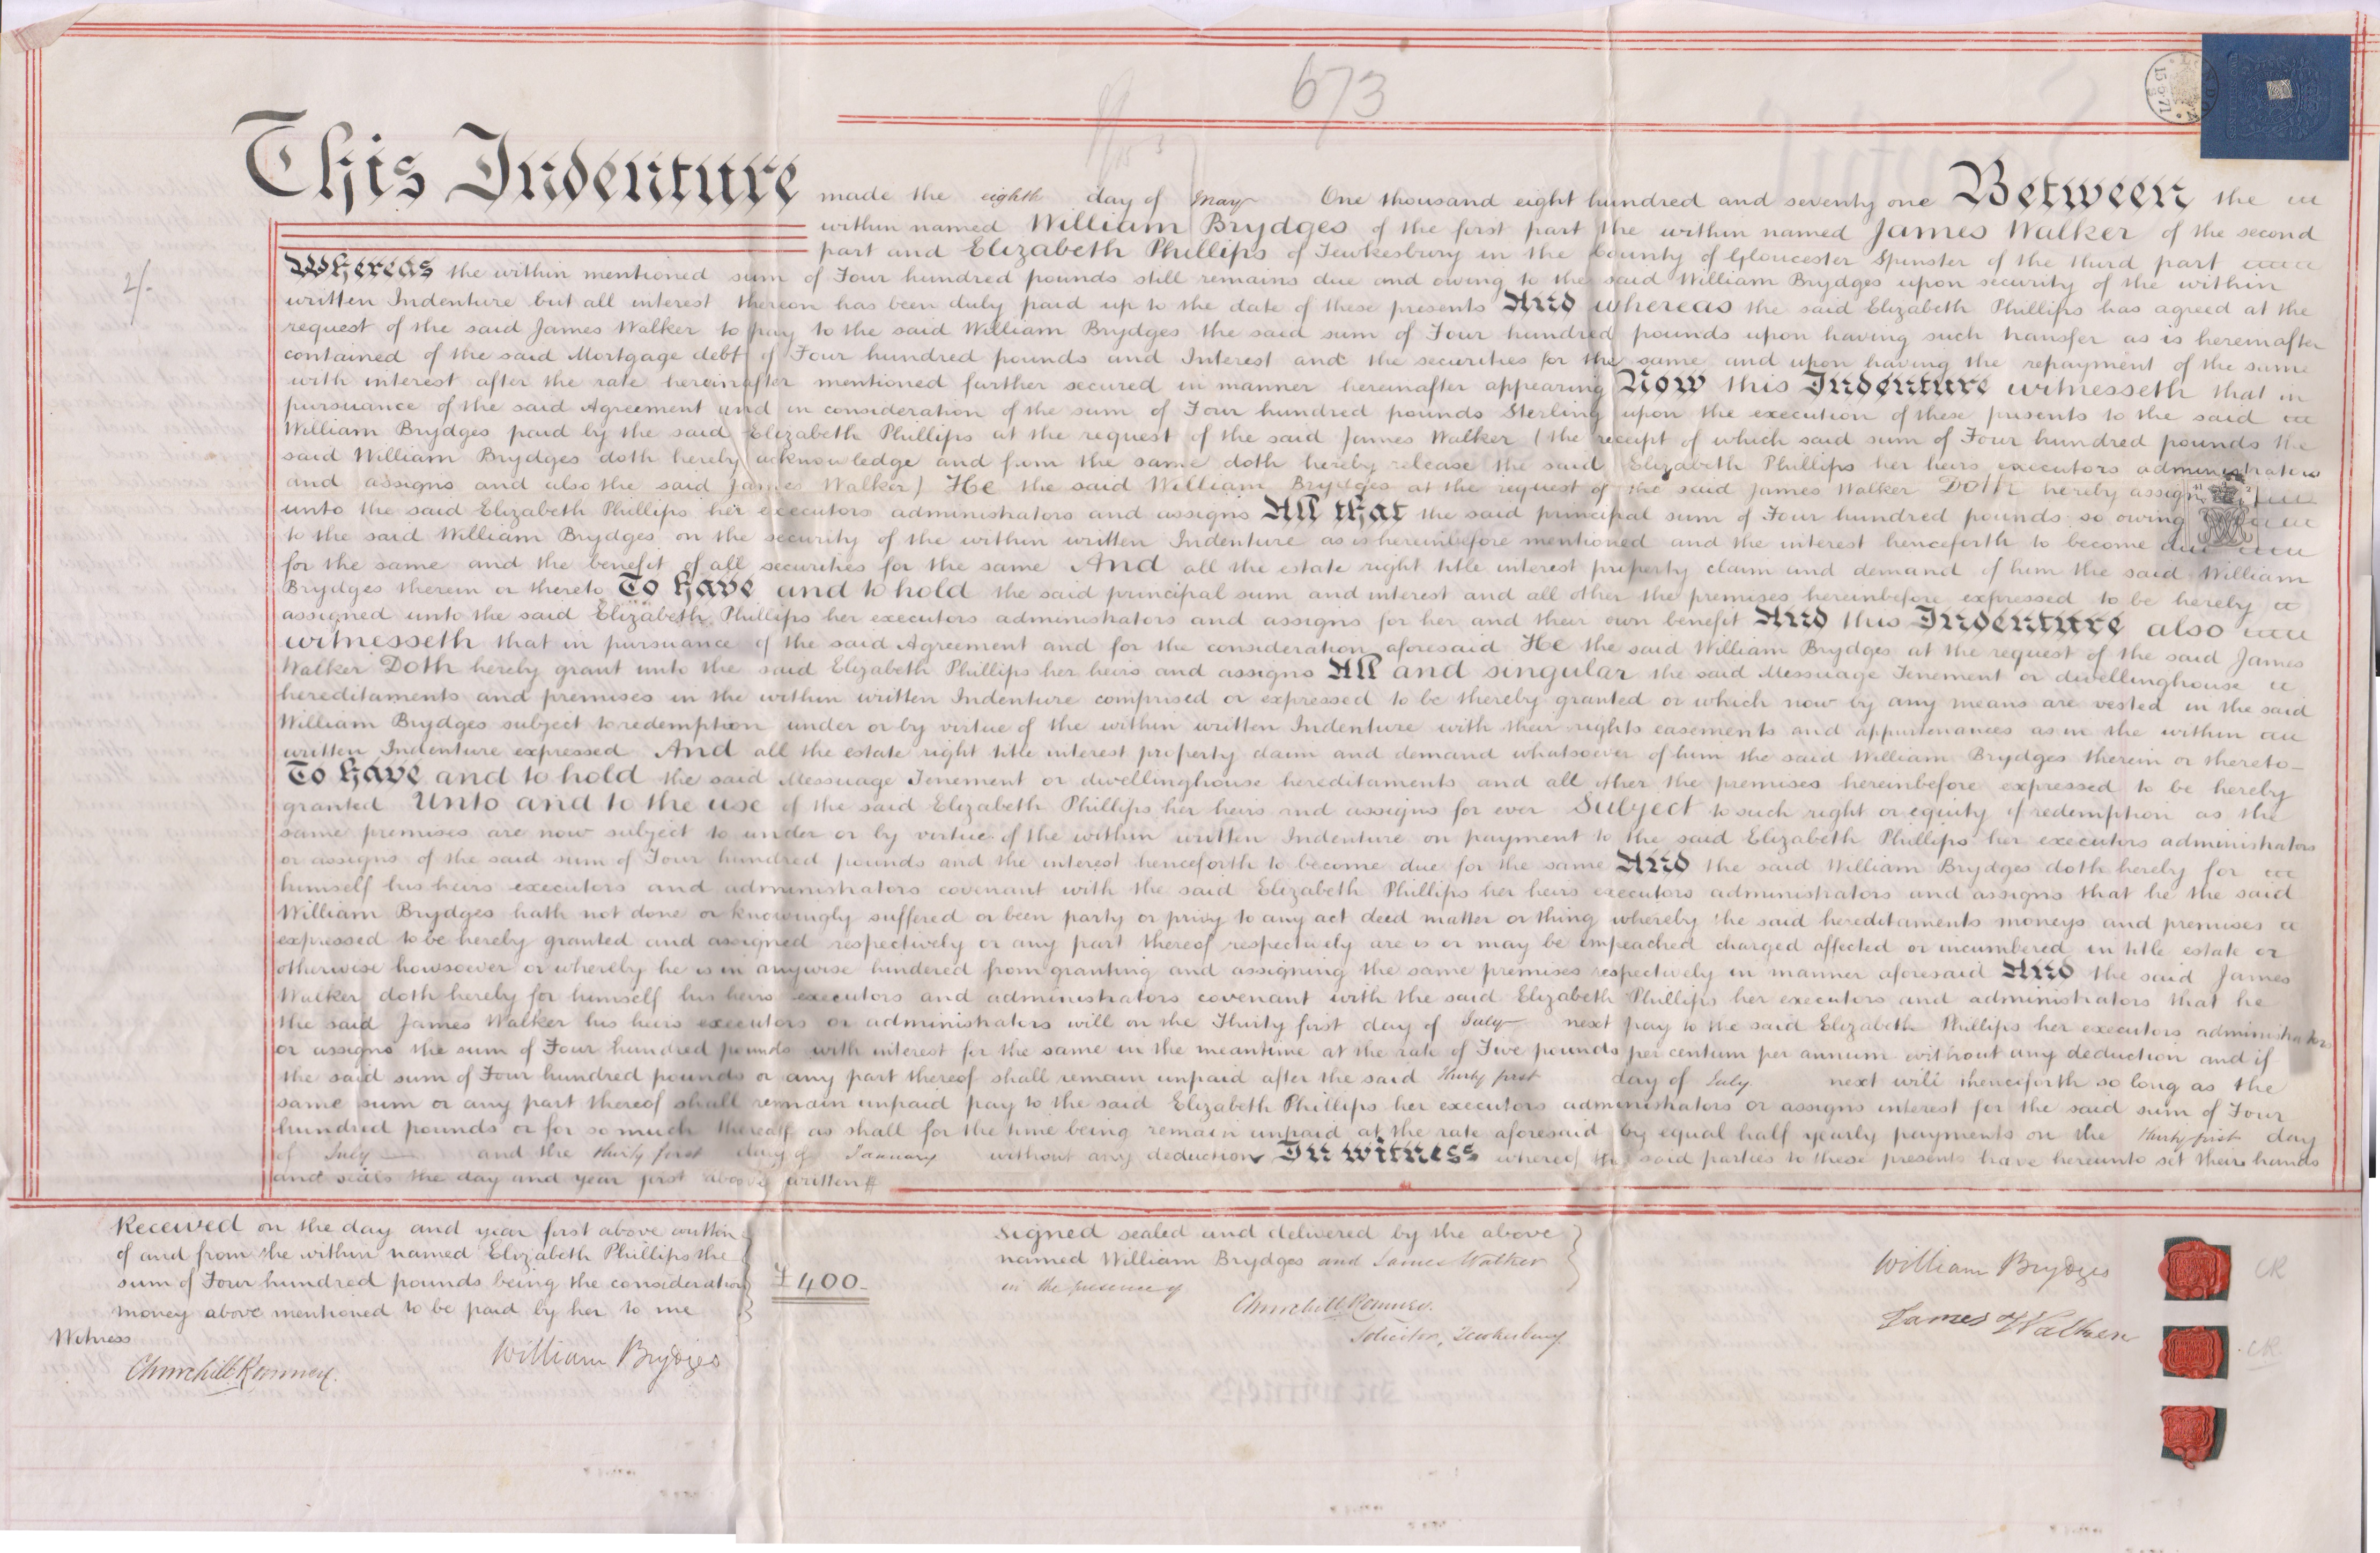 673
This Indenture made the eighth day of May One thousand eight hundred and seventy one Between the
within named William Brydges of the first part the within named James Walker of the second
part and Elizabeth Phillips of Tewkesbury in the County of Gloucester Spinster of the third part
2/-
Whereas the within mentioned sum of Four hundred pounds still remains due and owing to the said William Brydges upon security of the within
written Indenture but all interest thereon has been duly paid up to the date of these presents And whereas the said Elizabeth Phillips has agreed at the
request of the said James Walker to pay to the said William Brydges the said sum of Four hundred pounds upon having such transfer as is hereinafter
contained of the said Mortgage debt of Four hundred pounds and Interest and the securities for the same and upon having the repayment of the same
with interest after the rate hereinafter mentioned further secured in manner hereinafter appearing Now this Indenture witnesseth that in
pursuance of the said Agreement and in consideration of the sum of Four hundred pounds Sterling upon the execution of these presents to the said
William Brydges paid by the said Elizabeth Phillips at the request of the said James Walker (the receipt of which said sum of Four hundred pounds the
said William Brydges doth hereby acknowledge and from the same doth hereby release the said Elizabeth Phillips her heirs executors administrators
and assigns and also the said James Walker) He the said William Brydges at the request of the said James Walker Doth hereby assign
unto the said Elizabeth Phillips her executors administrators and assigns All that the said principal sum of Four hundred pounds so owing
to the said William Brydges on the security of the within written Indenture as is hereinbefore mentioned and the interest henceforth to become due
for the same and the benefit of all securities for the same And all the estate right title interest property claim and demand of him the said William
Brydges therein or thereto To have and to hold the said principal sum and interest and all other the premises hereinbefore expressed to be hereby
assigned unto the said Elizabeth Phillips her executors administrators and assigns for her and their own benefit And this Indenture also
witnesseth that in pursuance of the said Agreement and for the consideration aforesaid He the said William Brydges at the request of the said James
Walker Doth hereby grant unto the said Elizabeth Phillips her heirs and assigns All and singular the said Messuage Tenement or dwellinghouse
hereditaments and premises in the within written Indenture comprised or expressed to be thereby granted or which now by any means are vested in the said
William Brydges subject to redemption under or by virtue of the within written Indenture with their rights easements and appurtenances as in the within
written Indenture expressed And all the estate right title interest property claim and demand whatsoever of him the said William Brydges therein or thereto
To have and to hold the said Messuage Tenement or dwellinghouse hereditaments and all other the premises hereinbefore expressed to be hereby
granted Unto and to the use of the said Elizabeth Phillips her heirs and assigns for ever Subject to such right or equity of redemption as the
same premises are now subject to under or by virtue of the within written Indenture on payment to the said Elizabeth Phillips her executors administrators
or assigns of the said sum of Four hundred pounds and the interest henceforth to become due for the same And the said William Brydges doth hereby for
himself his heirs executors and administrators covenant with the said Elizabeth Phillips her heirs executors administrators and assigns that he the said
William Brydges hath not done or knowingly suffered or been party or privy to any act deed matter or thing whereby the said hereditaments moneys and premises
expressed to be hereby granted and assigned respectively or any part thereof respectively are is or may be impeached charged affected or incumbered in title estate or
otherwise howsoever or whereby he is in anywise hindered from granting and assigning the same premises respectively in manner aforesaid And the said James
Walker doth hereby for himself his heirs executors and administrators covenant with the said Elizabeth Phillips her executors and administrators that he
the said James Walker his heirs executors or administrators will on the Thirty first day of July next pay to the said Elizabeth Phillips her executors administrators
or assigns the sum of Four hundred pounds with interest for the same in the meantime at the rate of Five pounds per centum per annum without any deduction and if
the said sum of Four hundred pounds or any part thereof shall remain unpaid after the said thirty first day of July next will thenceforth so long as the
same sum or any part thereof shall remain unpaid pay to the said Elizabeth Phillips her executors administrators or assigns interest for the said sum of Four
hundred pounds or for so much thereof as shall for the time being remain unpaid at the rate aforesaid by equal half yearly payments on the thirty first day
of July and the thirty first day of January without any deduction In witness whereof the said parties to these presents have hereunto set their hands
and seals the day and year first above written
Received on the day and year first above written
of and from the within named Elizabeth Phillips the
sum of Four hundred pounds being the consideration
money above mentioned to be paid by her to me
£400
Witness
Churchill Romney
William Brydges
Signed sealed and delivered by the above
named William Brydges and James Walker
in the presence of
Churchill Romney
Solicitor, Tewkesbury
William Brydges
James Walker
CR
CR